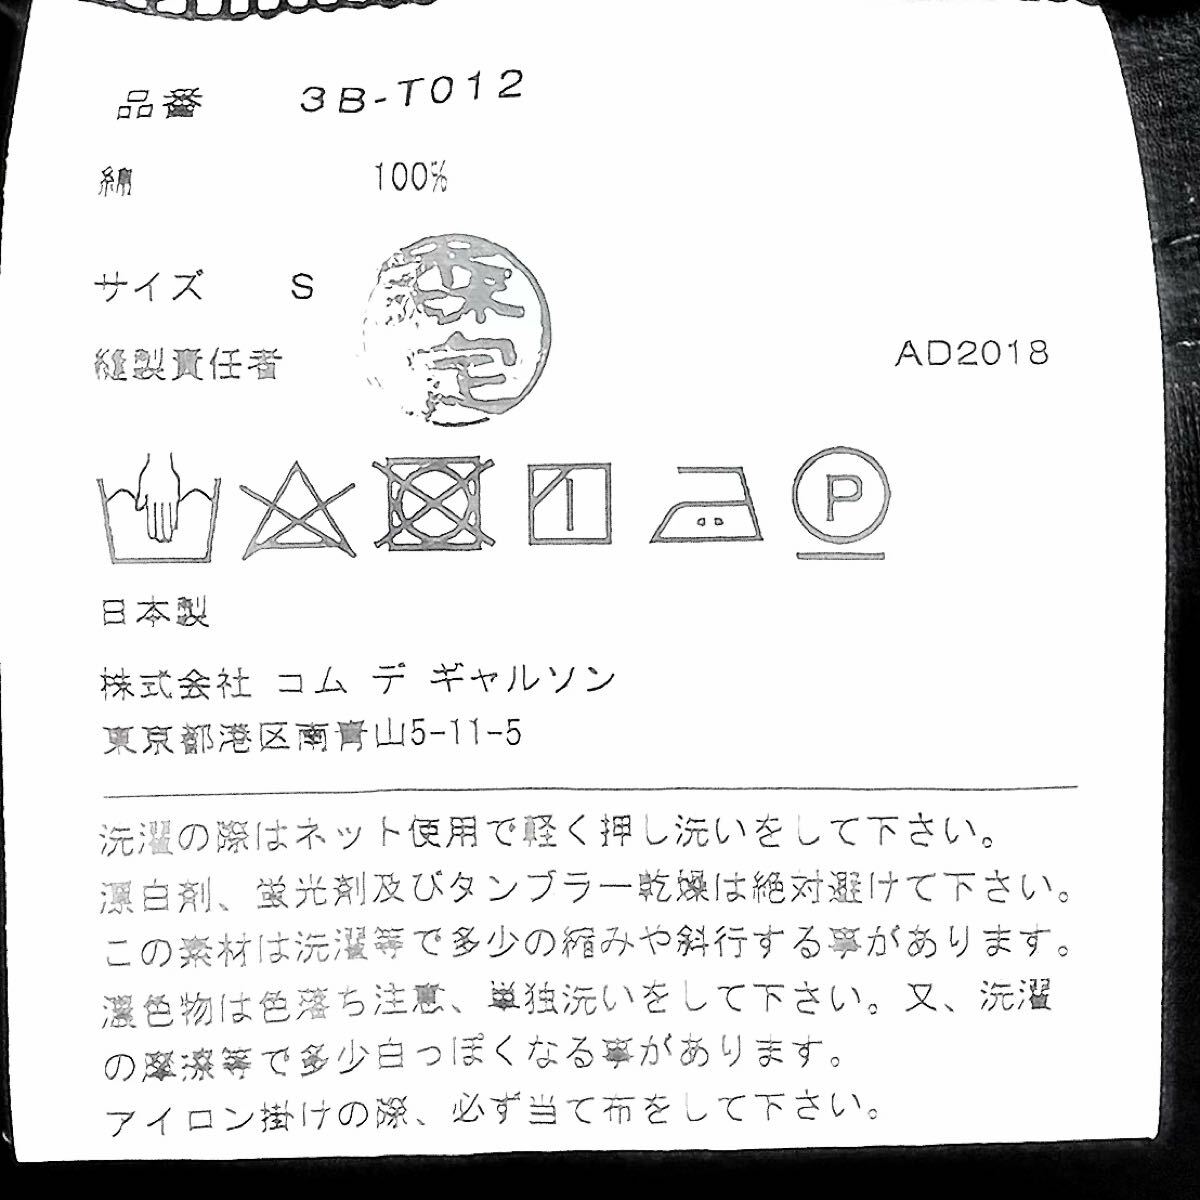 品番 3B-T012
綿 100%
サイズ S
縫製責任者
AD2018
P
日本製
株式会社 コム デ ギャルソン
東京都港区南青山5-11-5
洗濯の際はネット使用で軽く押し洗いをして下さい。
漂白剤、蛍光剤及びタンブラー乾燥は絶対避けて下さい。
この素材は洗濯等で多少の縮みや斜行する事があります。
濃色物は色落ち注意、単独洗いをして下さい。又、洗濯
の摩擦等で多少白っぽくなる事があります。
アイロン掛けの際、必ず当て布をして下さい。